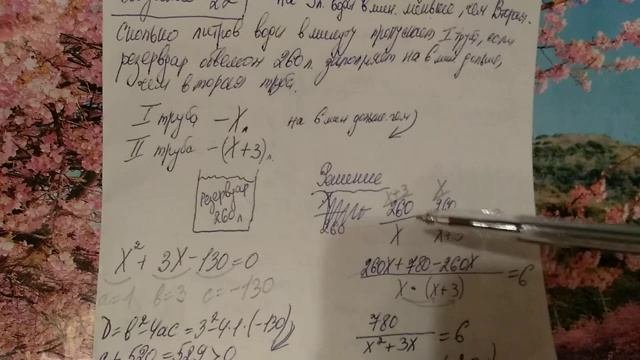 на 3л. воды в мин. меньше, чем вторая.
Сколько литров воды в минуту пропускает I труба, если
резервуар объемом 260 л. заполняет на 6 мин дольше,
чем вторая труба.
I труба – x л    на 6 мин дольше чем
II труба – (x+3) л.
резервуар
260 л
Решение
x+3 x
260 260
x x+3
x² + 3x – 130 = 0
a=1 b=3 c=-130
260x + 780 - 260x = 6
x · (x+3)
D = b² - 4ac = 3² - 4·1·(-130)
780 = 6
x² + 3x
9 + 520 = 529 > 0